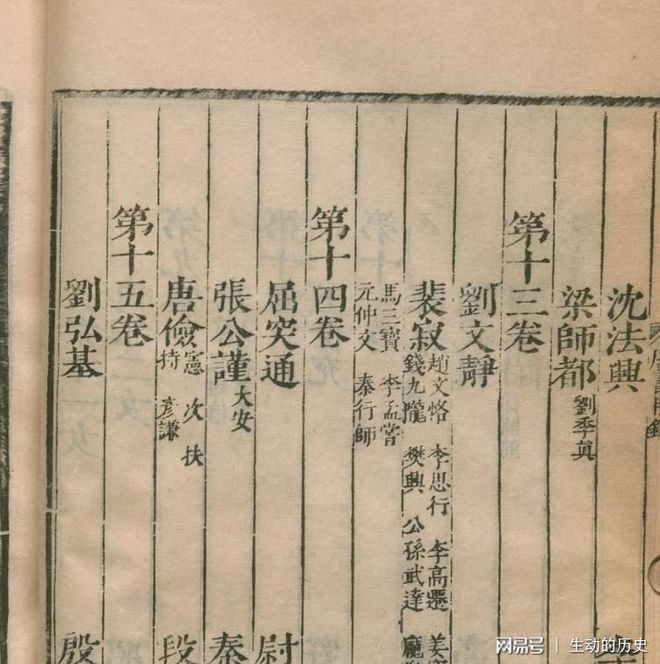 沈法興
梁師都 劉季眞
第十三卷
劉文靜
裴寂 趙文恪 李思行 李高遷 姜
錢九隴 樊興 公孫武達 龐
馬三寶 李孟嘗
元仲文 秦行師
第十四卷
屈突通 尉
張公謹 大安 秦
唐儉 憲 次 扶
持 彥謙 段
第十五卷
劉弘基 殷
网易号 | 生动的历史